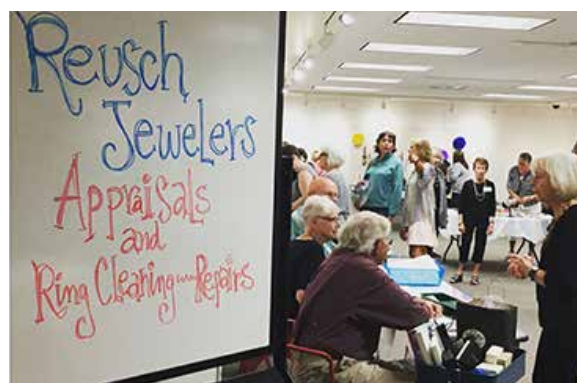 Reusch
Jewelers
Appraisals
and
Ring Cleaning~~Repairs